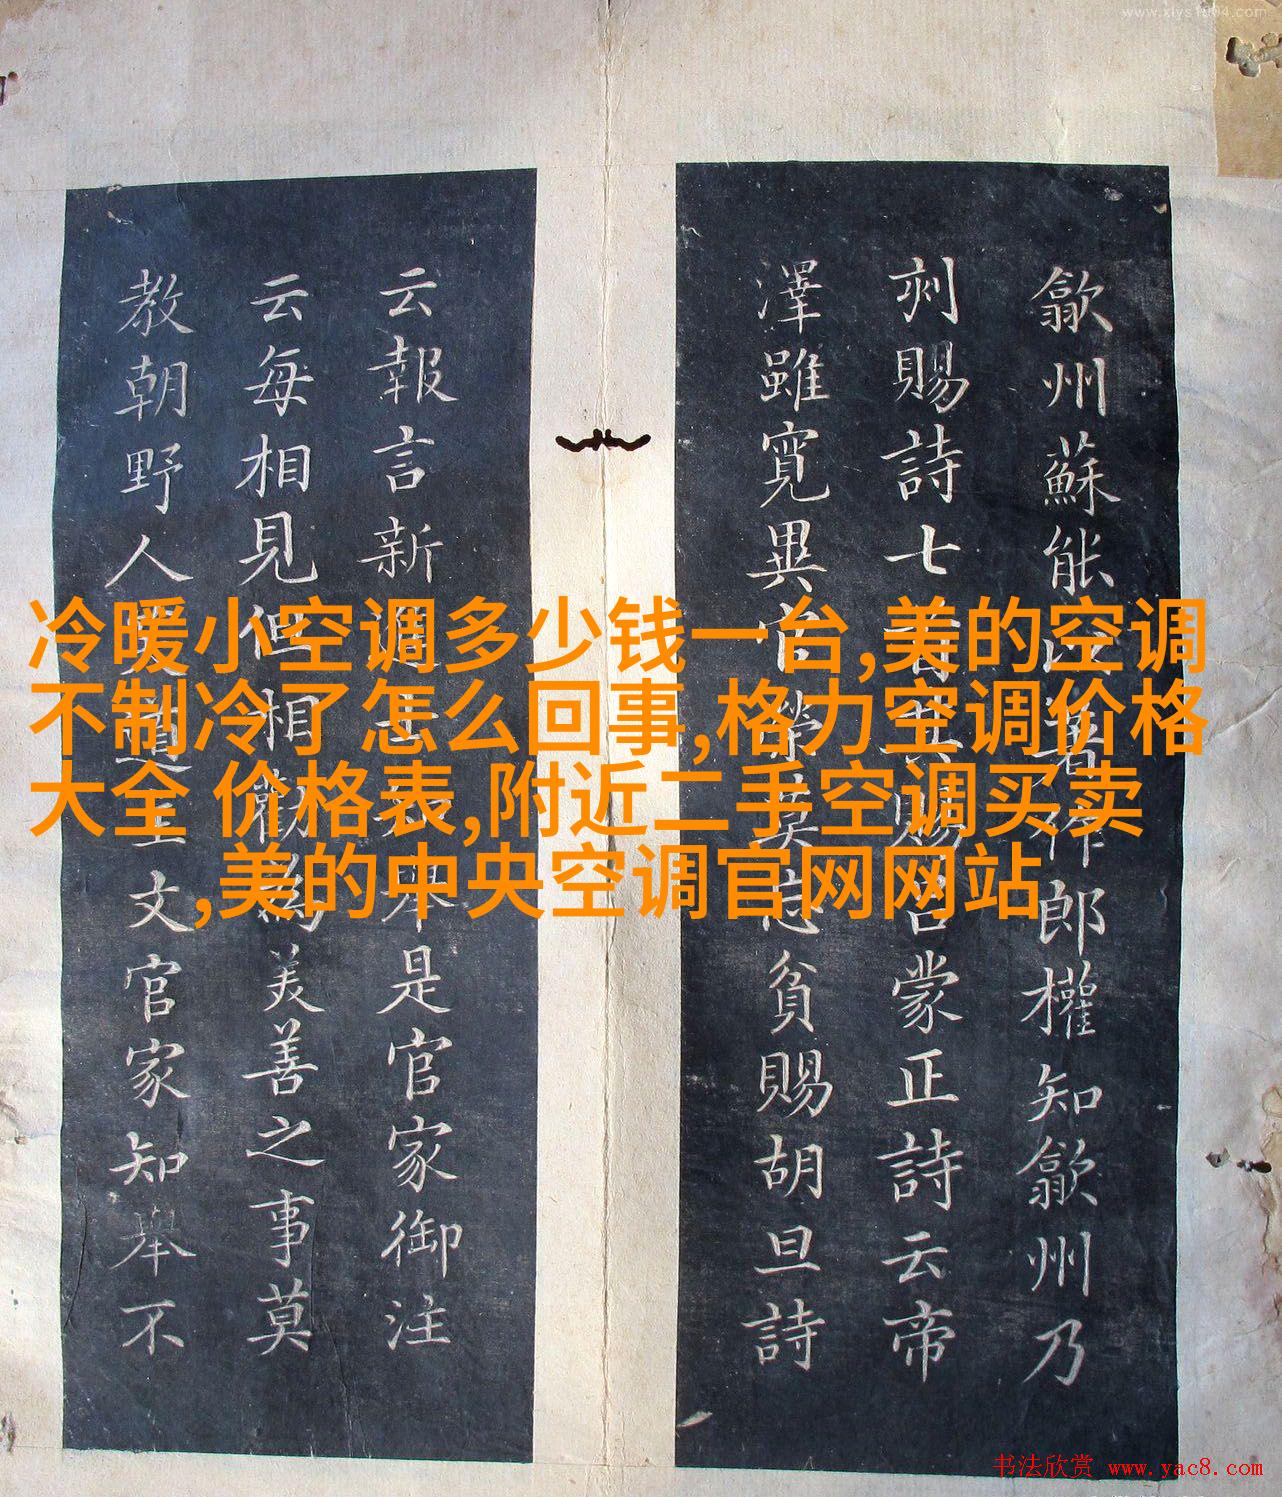 www.xlys1904.com
歙州蘇能著作郎權知歙州乃
刾賜詩七其賜呂蒙正詩云帝
澤雖寬異官榮莫忘貧賜胡旦詩
云報言新士知舉是官家御注
云每相見但相勸為美善之事莫
教朝野人道主文官家知舉不
冷暖小空调多少钱一台,美的空调
不制冷了怎么回事,格力空调价格
大全 价格表,附近二手空调买卖
,美的中央空调官网网站
书法欣赏 www.yac8.com